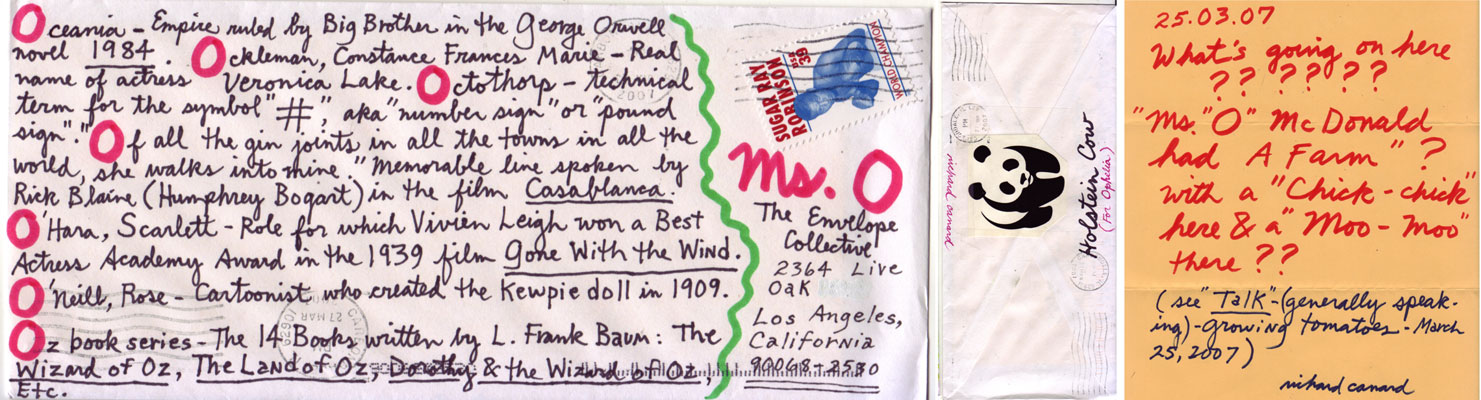 Oceania - Empire ruled by Big Brother in the George Orwell
novel 1984. Ockleman, Constance Frances Marie - Real
name of actress Veronica Lake. Octothorp - technical
term for the symbol "#", aka "number sign" or "pound
sign". "Of all the gin joints in all the towns in all the
world, she walks into mine." Memorable line spoken by
Rick Blaine (Humphrey Bogart) in the film Casablanca.
O'Hara, Scarlett - Role for which Vivien Leigh won a Best
Actress Academy Award in the 1939 film Gone With the Wind.
O'Neill, Rose - Cartoonist who created the Kewpie doll in 1909.
Oz book series - The 14 Books written by L. Frank Baum: The
Wizard of Oz, The Land of Oz, Dorothy & the Wizard of Oz,
Etc.
SUGAR RAY
ROBINSON
39
USA
WORLD CHAMPION
2007
27 MAR
62901
Ms. O
The Envelope
Collective
2364 Live
Oak
Los Angeles,
California
90068-2530
richard canard
Holstein Cow
(For Ophelia)
25.03.07
What's going on here
? ? ? ? ? ?
"Ms. "O" McDonald
had A Farm" ?
with a "Chick-chick"
here & a "Moo-moo"
there ??
(see "Talk"-(generally speak-
ing)-growing tomatoes - March
25, 2007)
richard canard